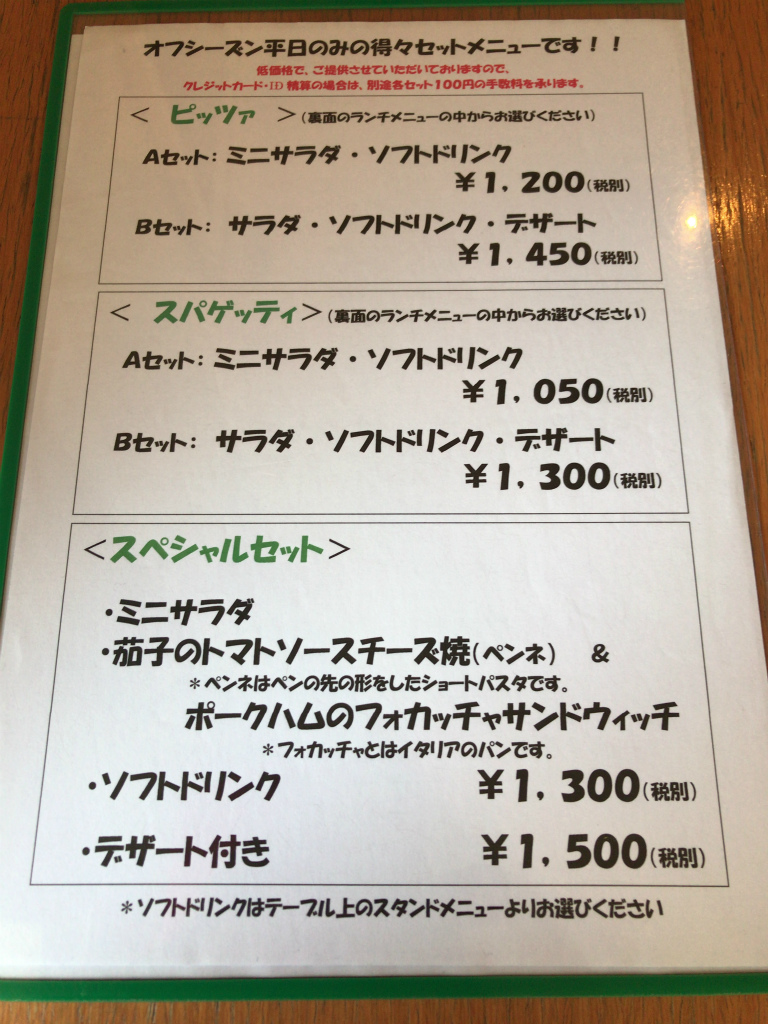 オフシーズン平日のみの得々セットメニューです！！
低価格で、ご提供させていただいておりますので、
クレジットカード・iD 精算の場合は、別途各セット100円の手数料を承ります。
＜ ピッツァ ＞(裏面のランチメニューの中からお選びください)
Aセット: ミニサラダ・ソフトドリンク
￥1，200(税別)
Bセット: サラダ・ソフトドリンク・デザート
￥1，450(税別)
＜ スパゲッティ＞(裏面のランチメニューの中からお選びください)
Aセット: ミニサラダ・ソフトドリンク
￥1，050(税別)
Bセット: サラダ・ソフトドリンク・デザート
￥1，300(税別)
＜スペシャルセット＞
・ミニサラダ
・茄子のトマトソースチーズ焼(ペンネ) ＆
＊ペンネはペンの先の形をしたショートパスタです。
ポークハムのフォカッチャサンドウィッチ
＊フォカッチャとはイタリアのパンです。
・ソフトドリンク ￥1，300(税別)
・デザート付き ￥1，500(税別)
＊ソフトドリンクはテーブル上のスタンドメニューよりお選びください